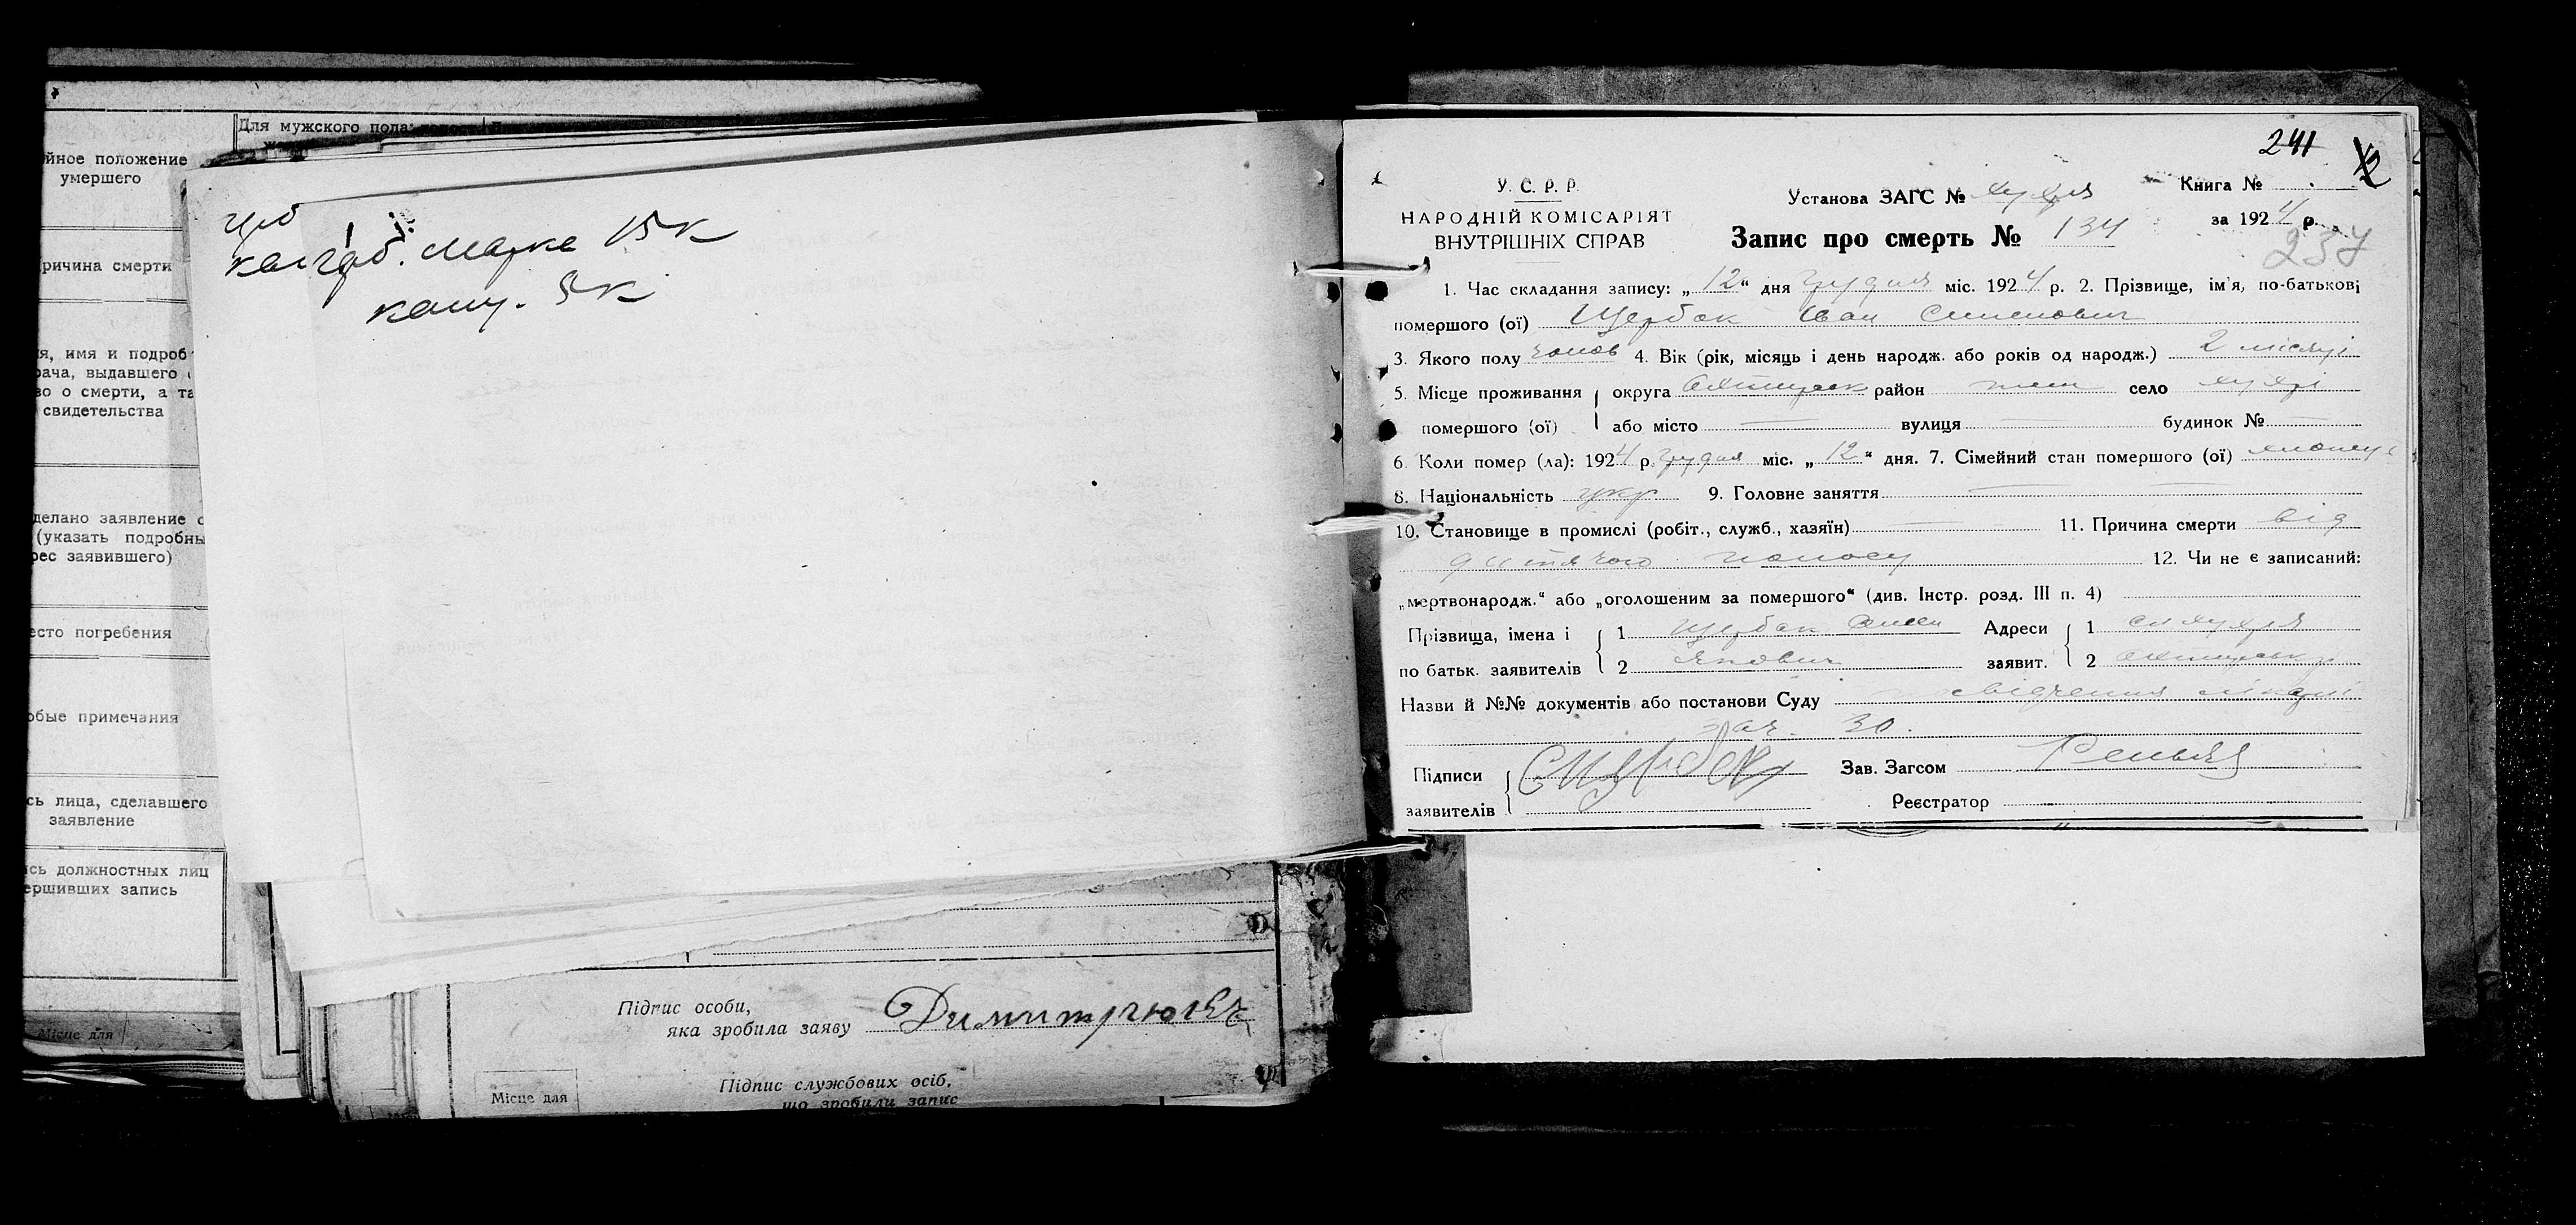 Для мужского пола:
йное положение
умершего
ричина смерти
я, имя и подроб
рача, выдавшего
во о смерти, а та
свидетельства
делано заявление с
(указать подробны
рес заявившего)
есто погребения
обые примечания
сь лица, сделавшего
заявление
ись должностных лиц
ершивших запись
Місце для
герб. марка 15 к
канц. 5 к
Підпис особи,
яка зробила заяву
Підпис службових осіб,
що зробили запис
Місце для
241
2
У. С. Р. Р.
НАРОДНІЙ КОМІСАРІЯТ
ВНУТРІШНІХ СПРАВ
Установа ЗАГС №
Книга №
за 1924 р.
237
Запис про смерть № 134
1. Час складання запису: „12“ дня грудня міс. 1924 р. 2. Прізвище, ім'я, по-батькові
помершого (ої) Щербак Иван Семенович
3. Якого полу чолов 4. Вік (рік, місяць і день народж. або років од народж.) 2 місяці
5. Місце проживання округа район село
помершого (ої) або місто — вулиця — будинок № —
6. Коли помер (ла): 1924 р. грудня міс. „12“ дня. 7. Сімейний стан помершого (ої)
8. Національність укр. 9. Головне заняття —
10. Становище в промислі (робіт., служб., хазяїн) — 11. Причина смерти від
дитячого поносу 12. Чи не є записаний:
„мертвонародж.“ або „оголошеним за помершого“ (див. Інстр. розд. III п. 4)
Прізвища, імена і 1 Щербак Семен Адреси 1
по батьк. заявителів 2 заявит. 2
Назви й №№ документів або постанови Суду
30.
Підписи
заявителів
Зав. Загсом
Реєстратор